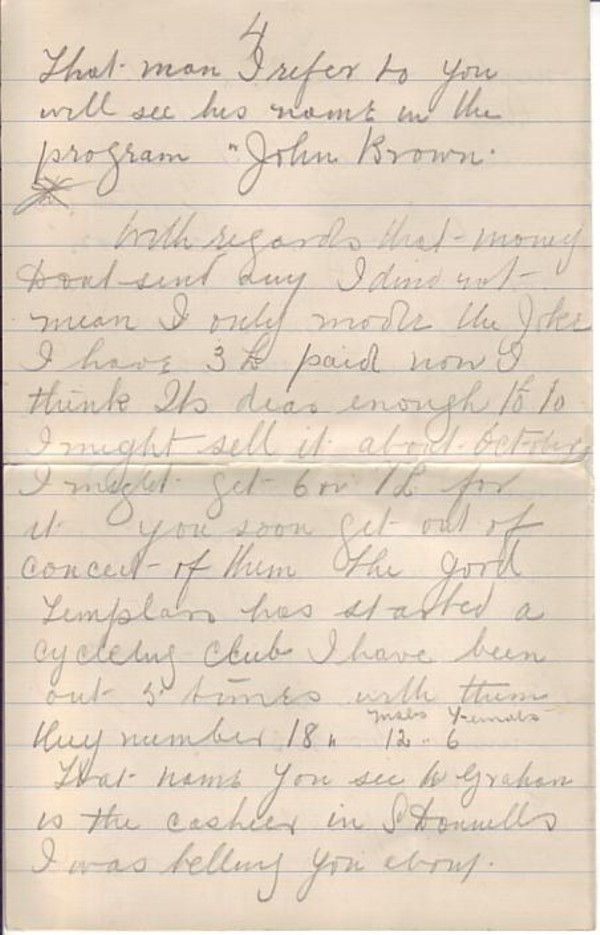 4
That man I refer to you
will see his name in the
program "John Brown.
With regards that money
Dont sent any I dind not
mean I only made the Joke
I have 3£ paid now I
think Its dear enough 10
I might sell it about October
I might get 6 or 7£ for
it you soon get out of
conceit of them The Good
Templars has started a
cycleing Club I have been
out 5 times with them
males Femals
they number 18 " 12 " 6
That name you see W Graham
is the casheer in
I was telling you about.